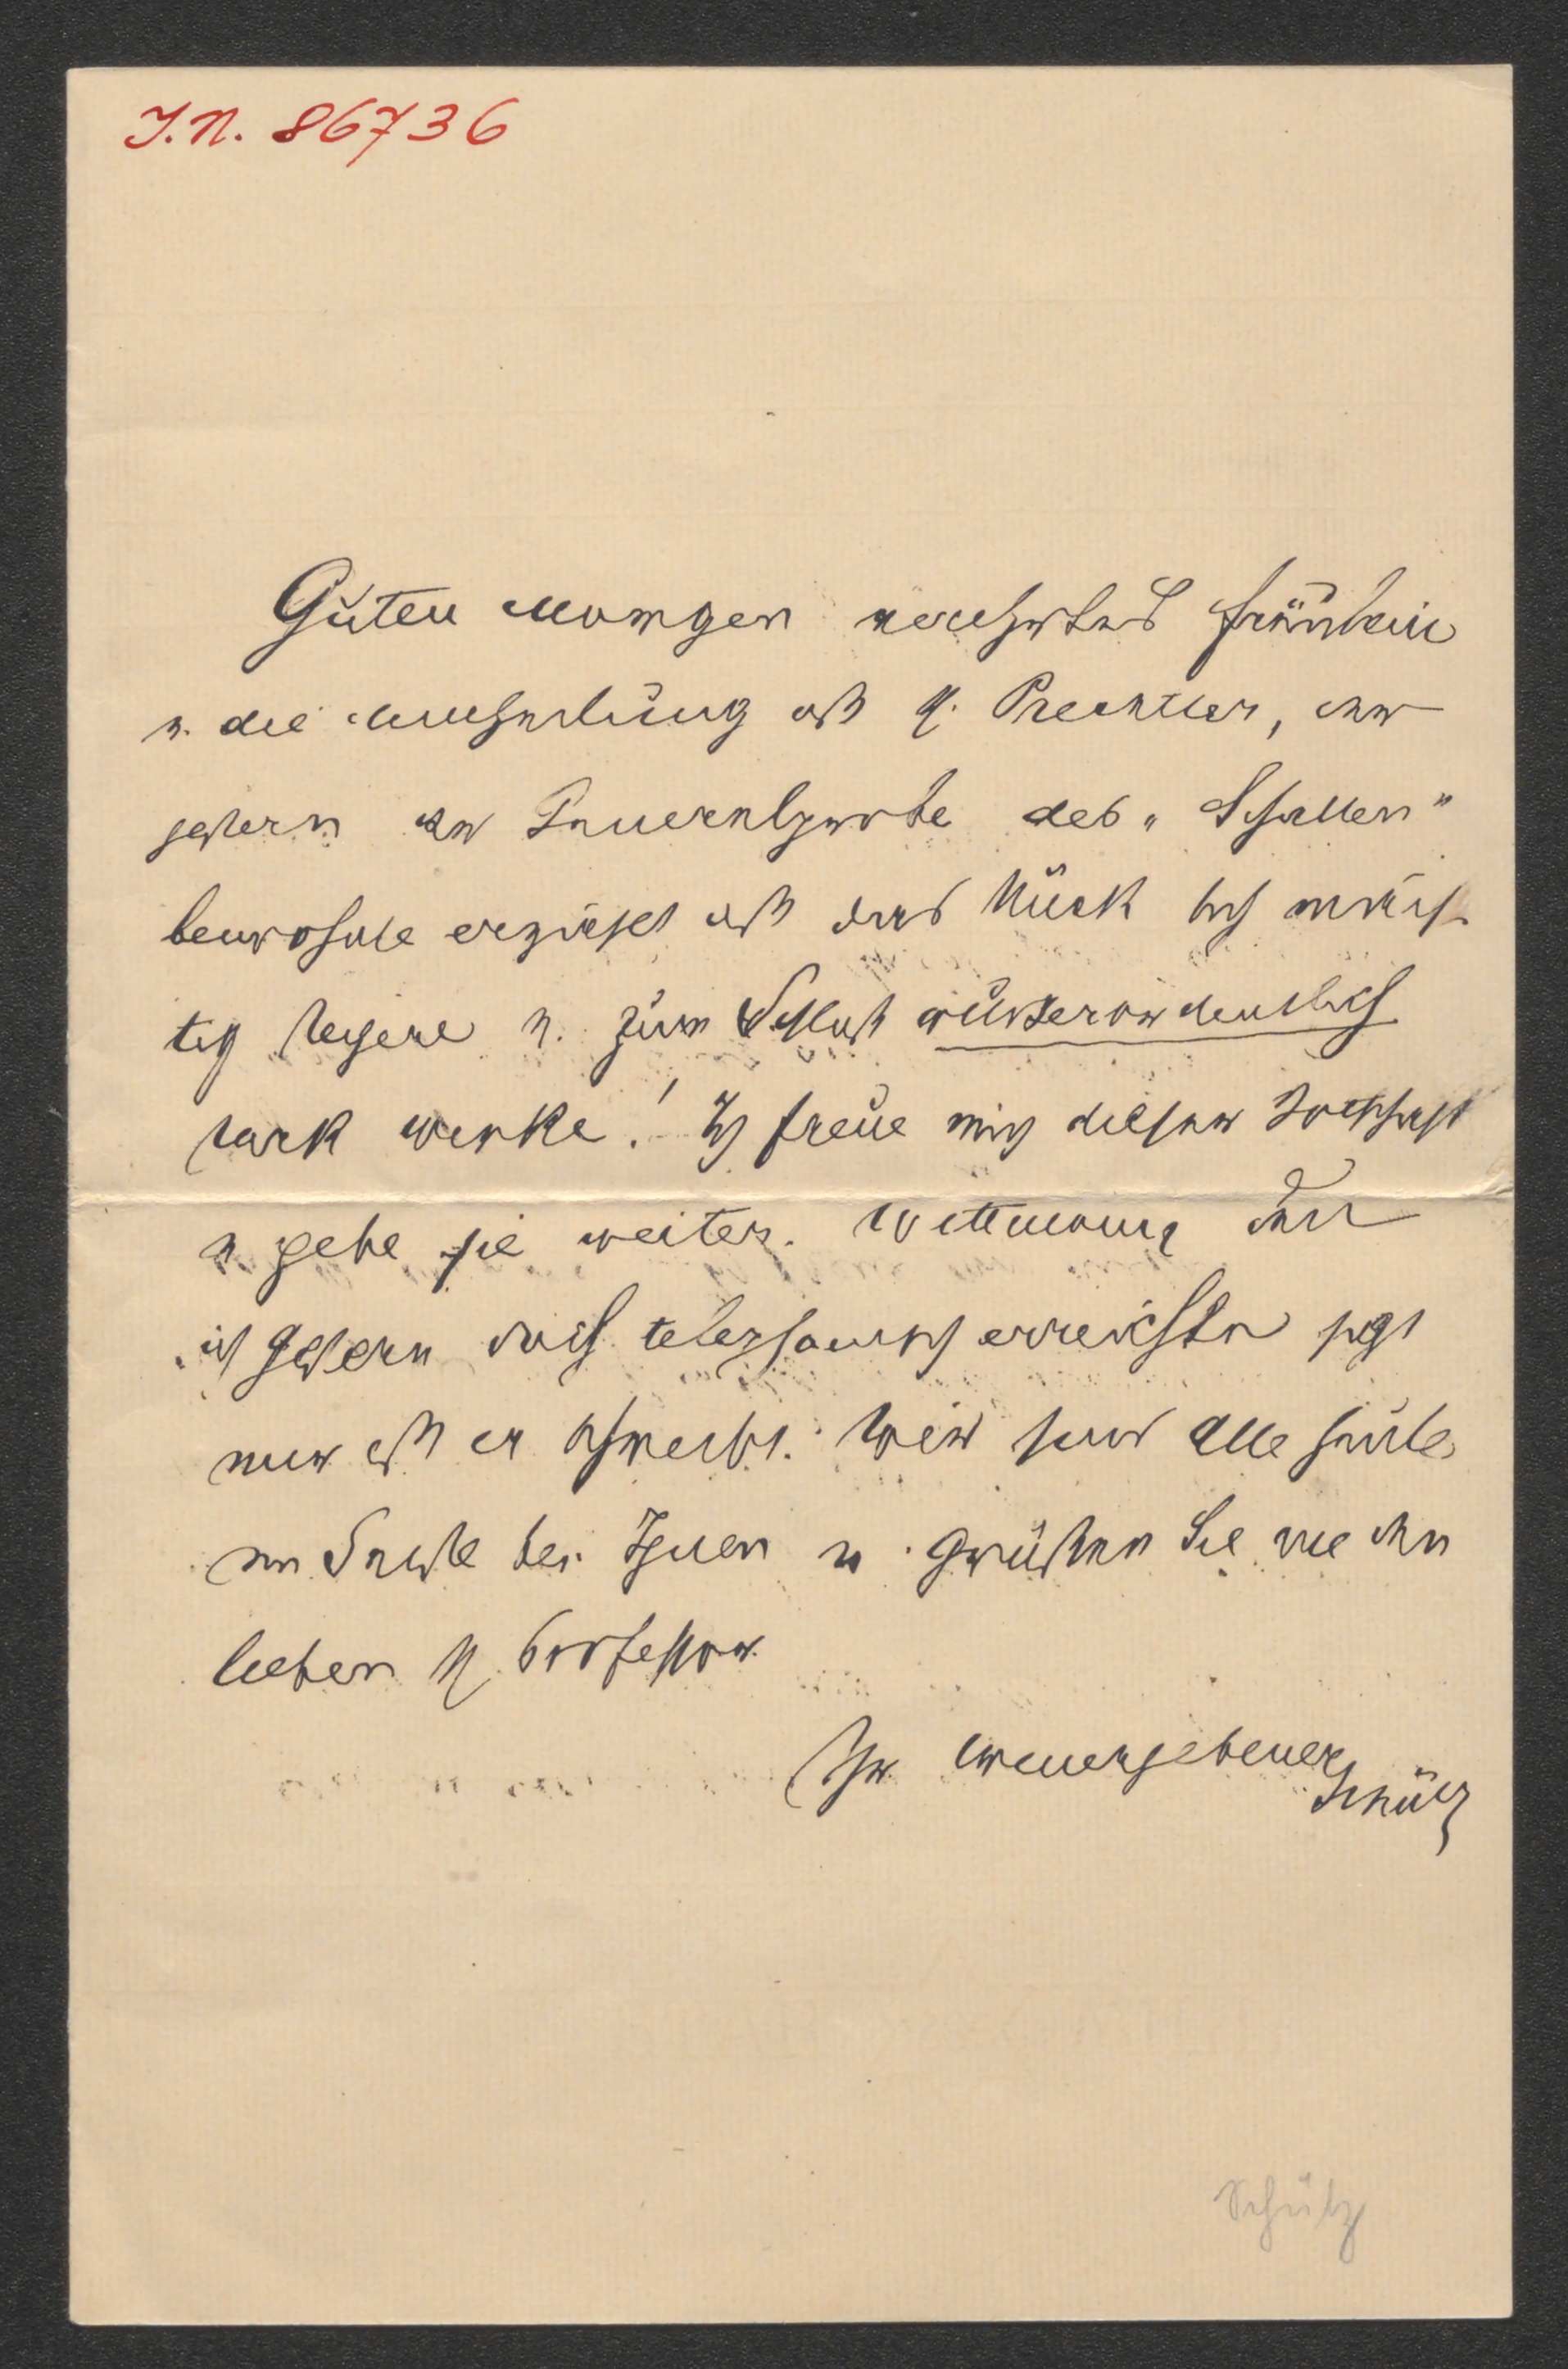 J.N. 86736
Guten Morgen verehrtes Fräulein
u. die Mittheilung daß H. Prechtler, der
gestern der Generalprobe des „Schatten"
beiwohnte erzählt daß das Stück sich mäch
tig steigere u. zum Schluß außerordentlich
stark wirke! Ich freue mich dieser Botschaft
u gebe sie weiter. Wittmann den
ich gestern noch telephonisch erreichte sagt
mir daß er schreibt. Wir sind alle heute
im Geiste bei Ihnen u. grüßen Sie wie den
lieben H. Professor.
Ihr treuergebener
Schütz
Schütz